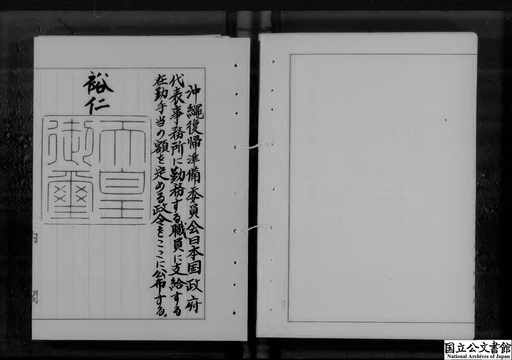 沖縄復帰準備委員会日本国政府
代表事務所に勤務する職員に支給する
在勤手当の額を定める政令をここに公布する。
裕仁
天皇
御璽
国立公文書館
National Archives of Japan